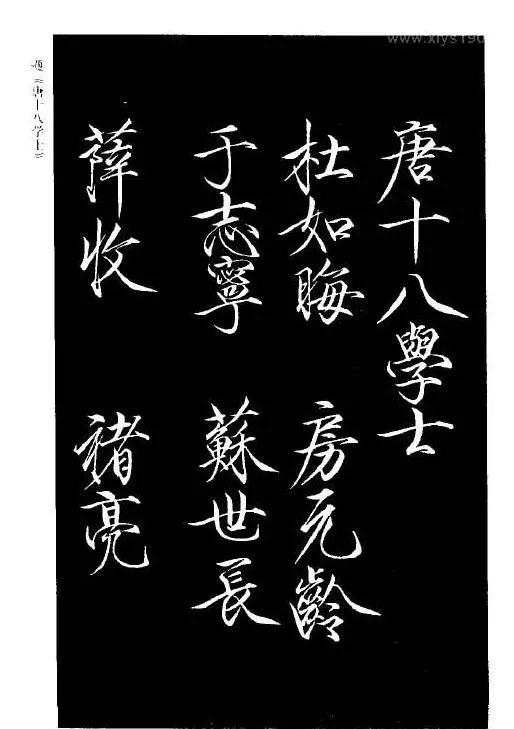 唐十八學士
杜如晦 房元齡
于志寧 蘇世長
薛收 褚亮
题《唐十八学士》